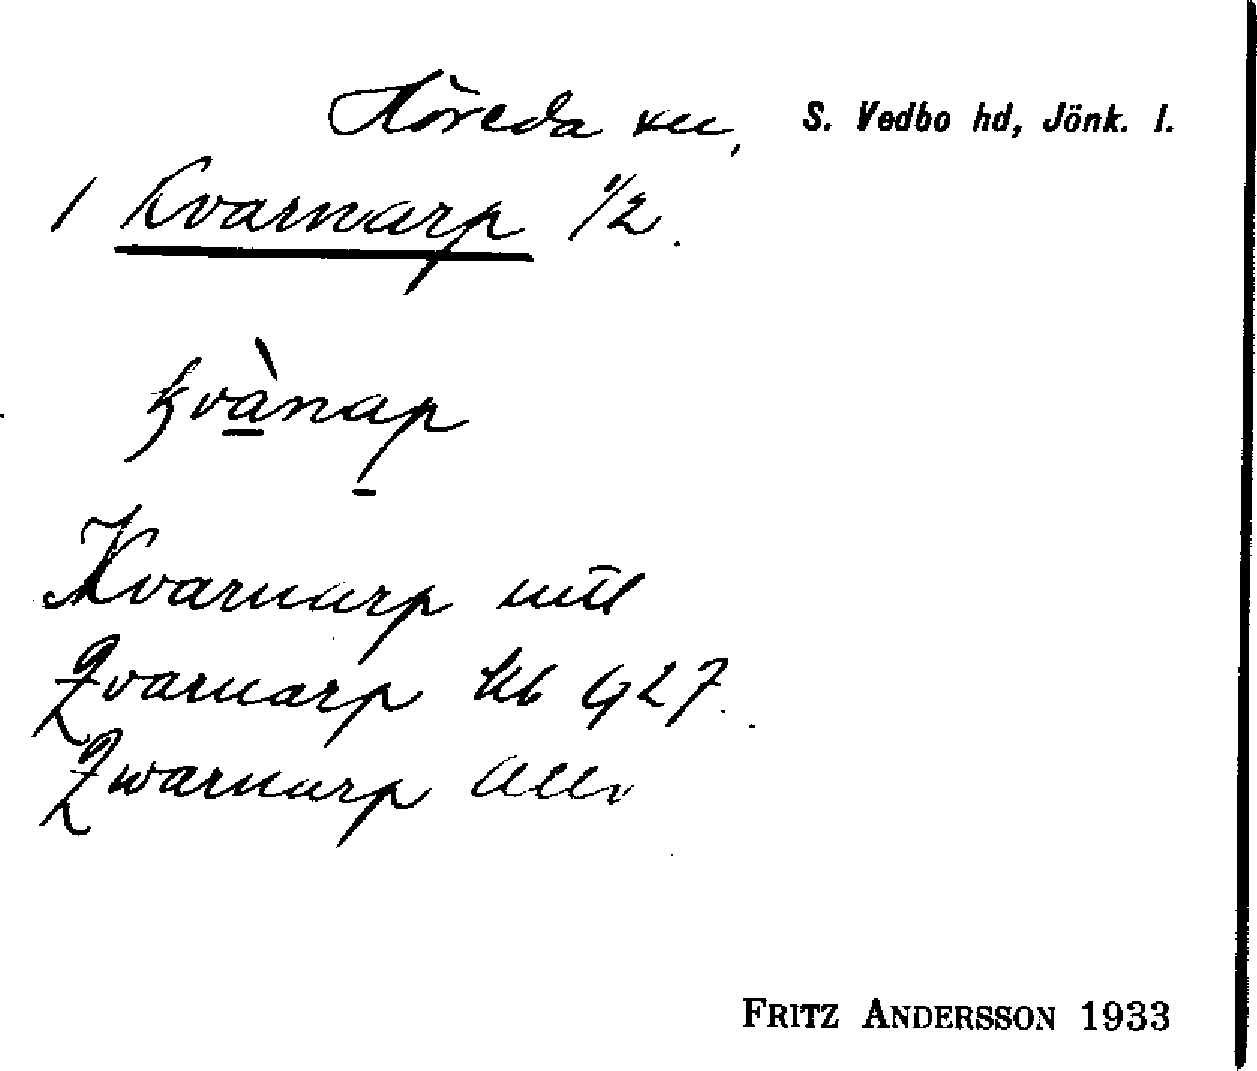 Höreda sn, S. Vedbo hd, Jönk. l.
1 Kvarnarp 1/2.
kvànap
Kvarnarp mtl
Qvarnarp kb 927.
Qwarnarp Allm
FRITZ ANDERSSON 1933